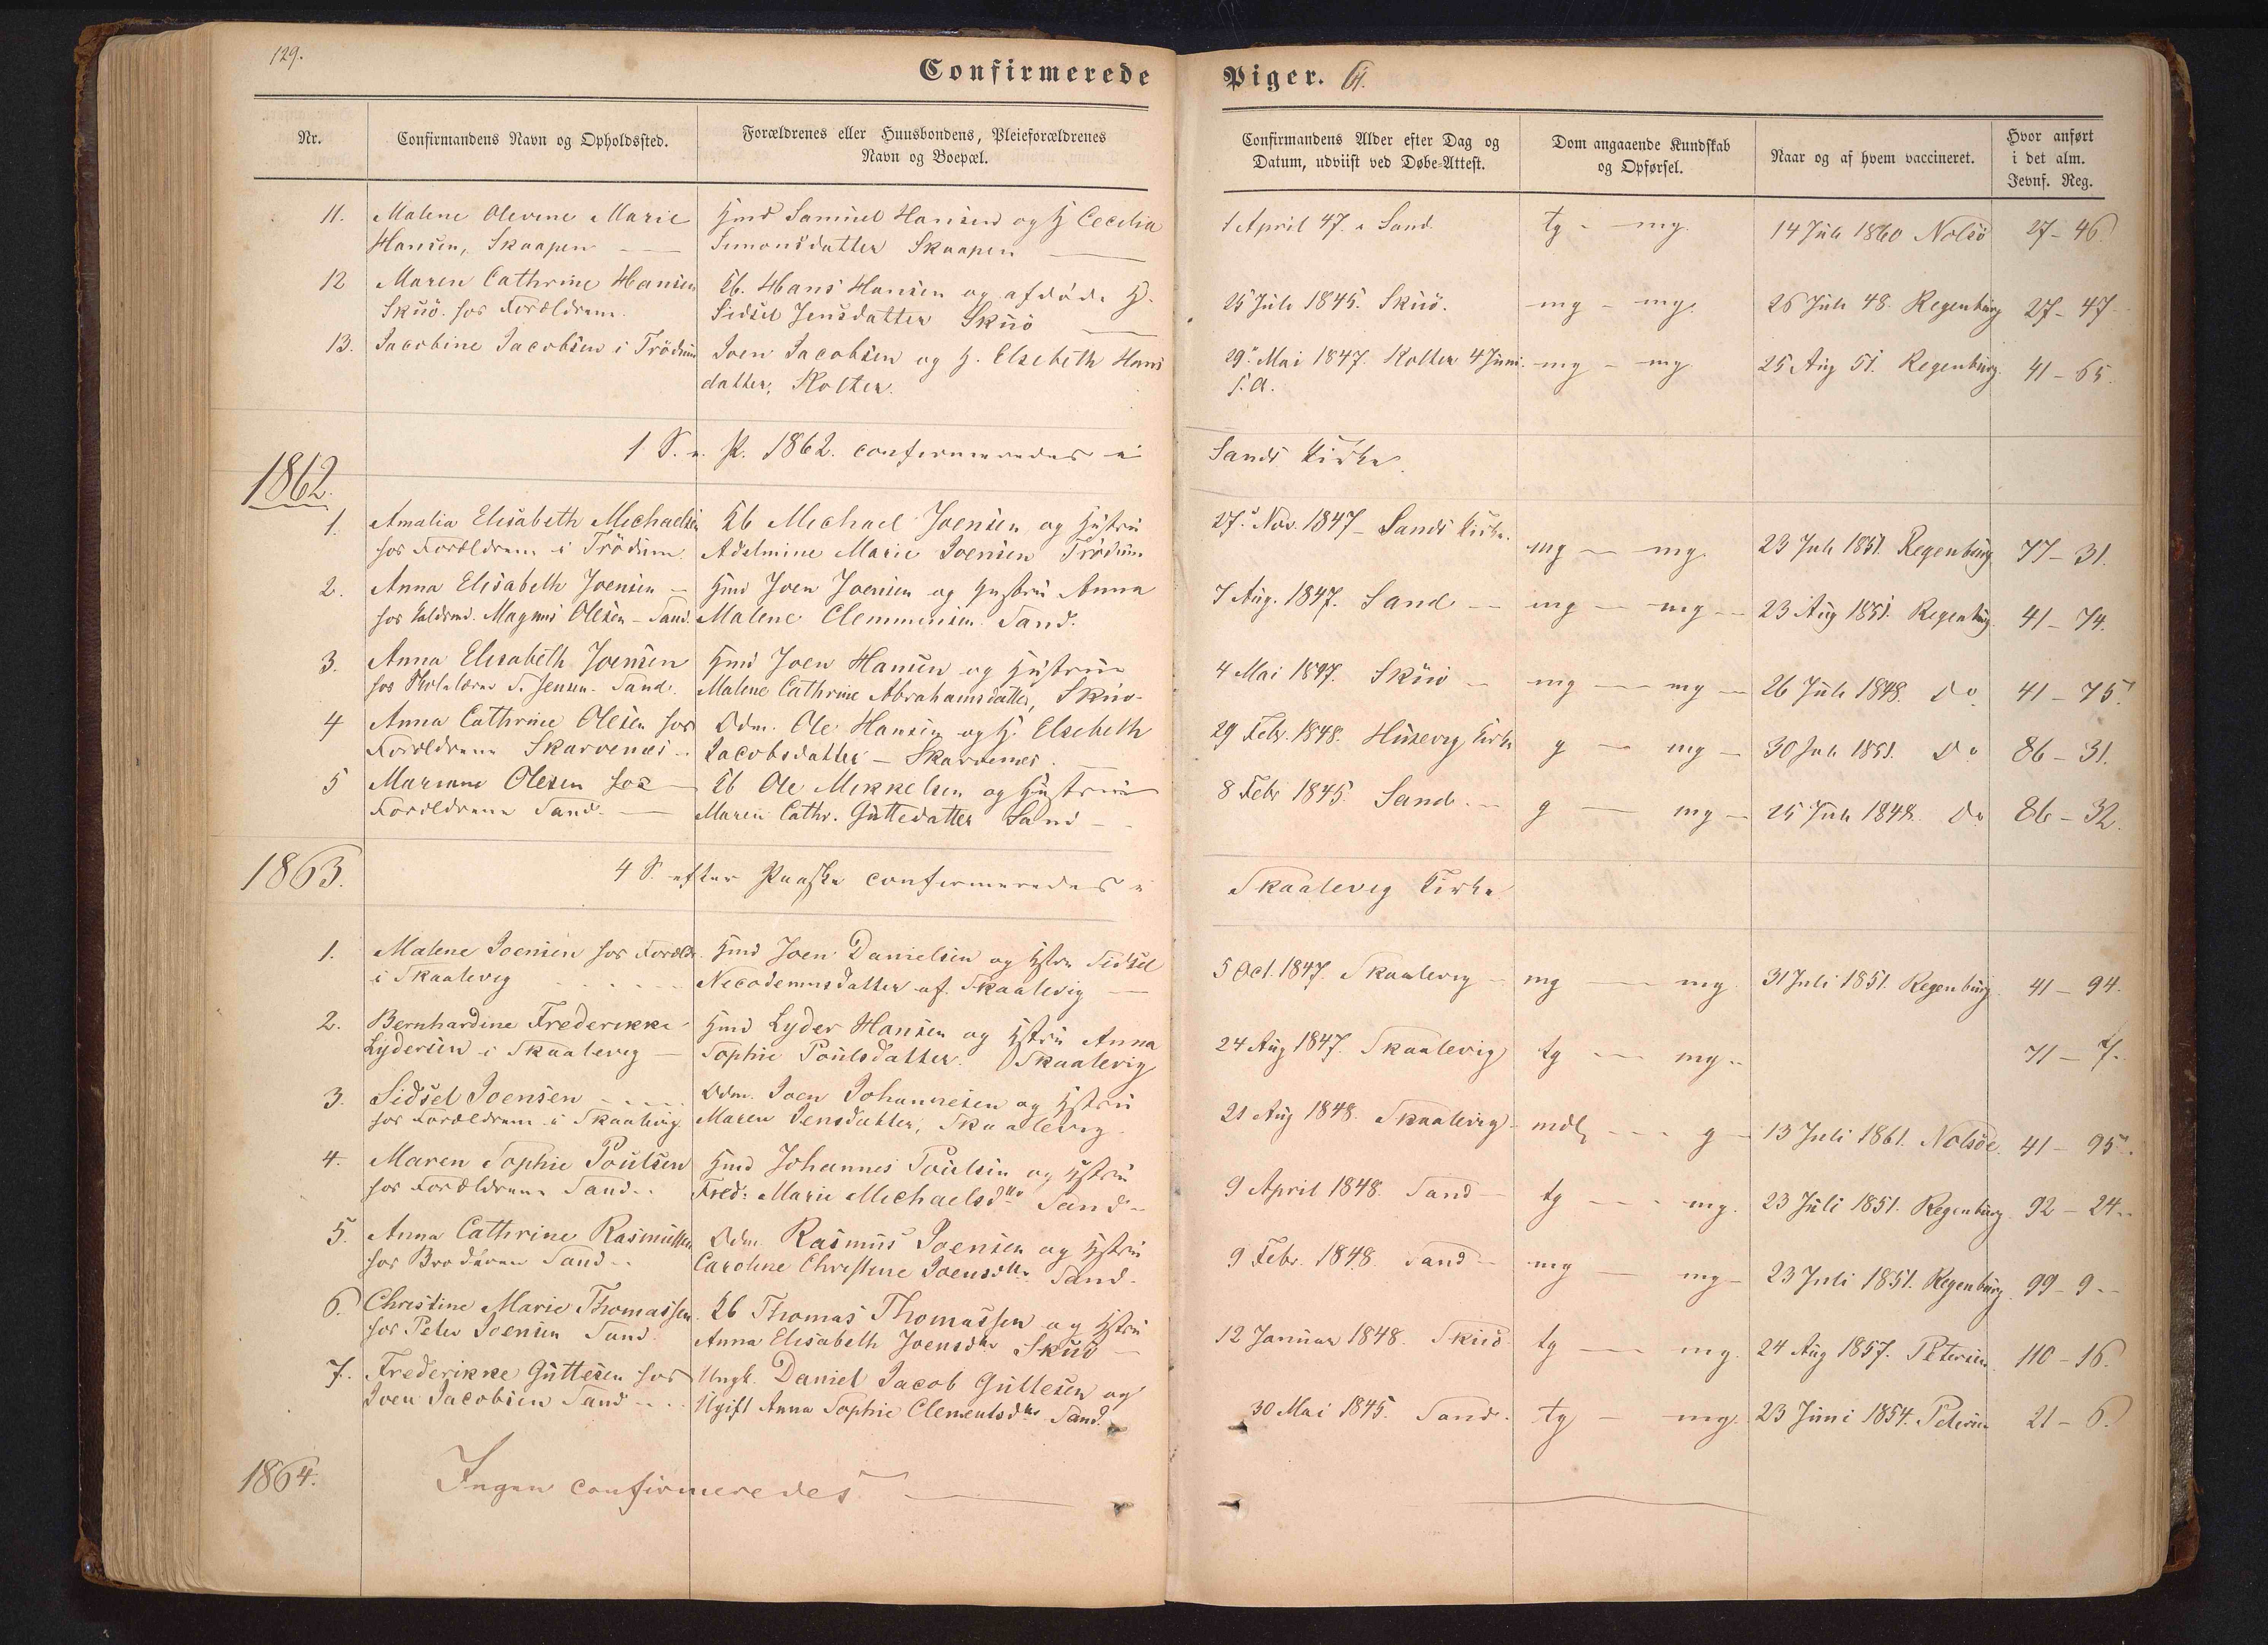 129.
Confirmerede Piger.
Nr.
Confirmandens Navn og Opholdssted.
Forældrenes eller Huusbondens, Pleieforældrenes
Navn og Boepæl.
Confirmandens Alder efter Dag og
Datum, udviist ved Døbe-Attest.
Dom angaaende Kundskab
og Opførsel.
Naar og af hvem vaccineret.
Hvor anført
i det alm.
Jevnf. Reg.
11. Malene Olevine Marie Hmd Samuel Hansen og H Cecilia 1 April 47. Sand tg - mg. 14 Juli 1860 Nolsö 27-46
Hansen, Skaapen Simonsdatter Skaapen
12 Maren Cathrine Hansen Kb. Hans Hansen og afdöde H. 25 Juli 1845. Skuö. mg - mg. 26 Juli 48. Regenburg 27-47
Skuö. hos Forældrene. Sidsel Jensdatter Skuö
13. Jacobine Jacobsen i Tródum Joen Jacobsen og H. Elsebeth Hans 29 Mai 1847. Kolter 4 Juni mg - mg 25 Aug 51. Regenburg. 41-65.
datter, Kolter. s.a.
1862.
1 S. e. P. 1862. confirmeredes i Sands Kirke.
1. Amalia Elisabeth Michaelsen Kb Michael Joensen og Hustru 27 Nov. 1847 - Sands Kirke. mg - mg. 23 Juli 1851. Regenburg 77-31.
hos Forældrene i Trödum. Adelmine Marie Joensen Trödum
2. Anna Elisabeth Joensen - Hmd Joen Joensen og Hustru Anna 7 Aug. 1847. Sand - mg - mg - 23 Aug 1851. Regenburg 41-74.
hos Magnus Olesen - Sand. Malene Clemmensen. Sand.
3. Anna Elisabeth Joensen Hmd Joen Hansen og Hustrue 4 Mai 1847. Skuö - mg - mg - 26 Juli 1848. Do 41-75.
hos Skolelærer S. Jensen. Sand. Malene Cathrine Abrahamsdatter, Skuö.
4 Anna Cathrine Olesen hos Odm. Ole Hansen og H. Elsebeth 29 Febr. 1848. Husevig Kirke g - mg - 30 Juli 1851. Do 86-31.
Forældrene Skarvenæs. Jacobsdatter - Skarvenes.
5 Mariane Olesen hos Kb Ole Mikkelsen og Hustrue 8 Febr 1845. Sand. - g - mg - 25 Juli 1848. Do 86-32.
Forældrene Sand. Maren Cathr. Guttedatter Sand -
1863.
4 S. efter Paaske confirmeredes i Skaalevig Kirke
1. Malene Joensen hos Foræld. Hmd Joen Danielsen og Hstru Sidsel 5 Oct. 1847. Skaalevig - mg - mg. 31 Juli 1851. Regenburg. 41-94.
i Skaalevig Necodemusdatter af Skaalevig
2. Bernhardine Frederikke Hmd Lyder Hansen og Hstru Anna 24 Aug 1847. Skaalevig tg - mg. 71-7.
Lydersen i Skaalevig - Sophie Poulsdatter. Skaalevig
3. Sidsel Joensen Odm. Joen Johannesen og Hstru 21 Aug 1848. Skaalevig - mdl - g - 13 Juli 1861. Nolsöe. 41-95.
hos Forældrene i Skaalevig. Maren Jensdatter, Skaalevig
4. Maren Sophie Poulsen Hmd Johannes Poulsen og Hstru 9 April 1848. Sand - tg - mg. 23 Juli 1851. Regenburg. 92-24.
hos Forældrene Sand. Fred: Marie Michaelsdtr Sand -
5. Anna Cathrine Rasmussen Odm Rasmus Joensen og Hstru 9 Febr. 1848. Sand - mg - mg - 23 Juli 1851. Regenburg. 99-9 -
hos Broderen Sand. Caroline Christine Joensdtr Sand.
6. Christine Marie Thomassen. Kb Thomas Thomassen og Hstru 12 Januar 1848. Skuö tg - mg. 24 Aug 1857. Petersen 110-16.
hos Peter Joensen Sand. Anna Elisabeth Joensdtr Skuö -
7. Frederikke Guttesen hos Ungk. Daniel Jacob Guttesen og 30 Mai 1845. Sand. tg - mg. 23 Juni 1854. Petersen 21-6.
Joen Jacobsen Sand - Ugift Anna Sophie Clementsdtr Sand.
1864. Ingen confirmeredes